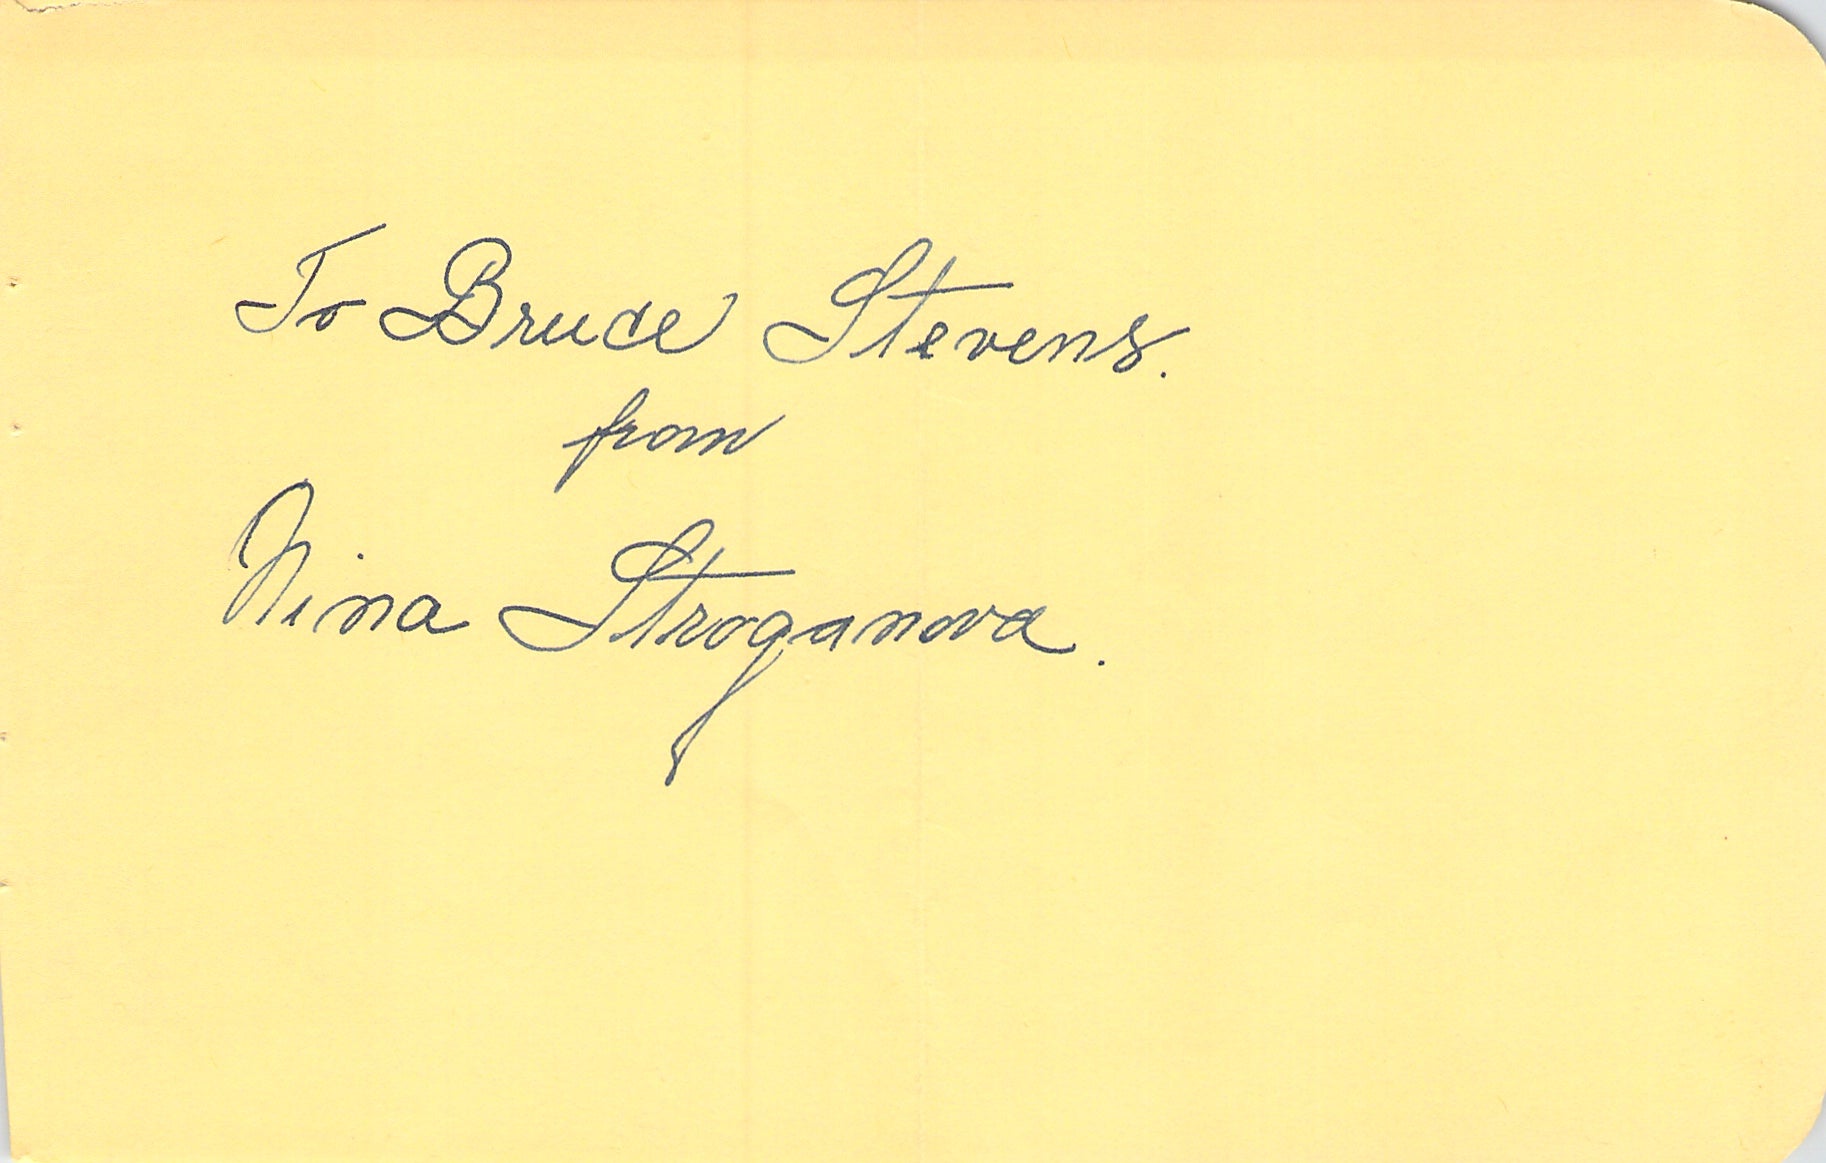 To Bruce Stevens.
from
Nina Stroganova.